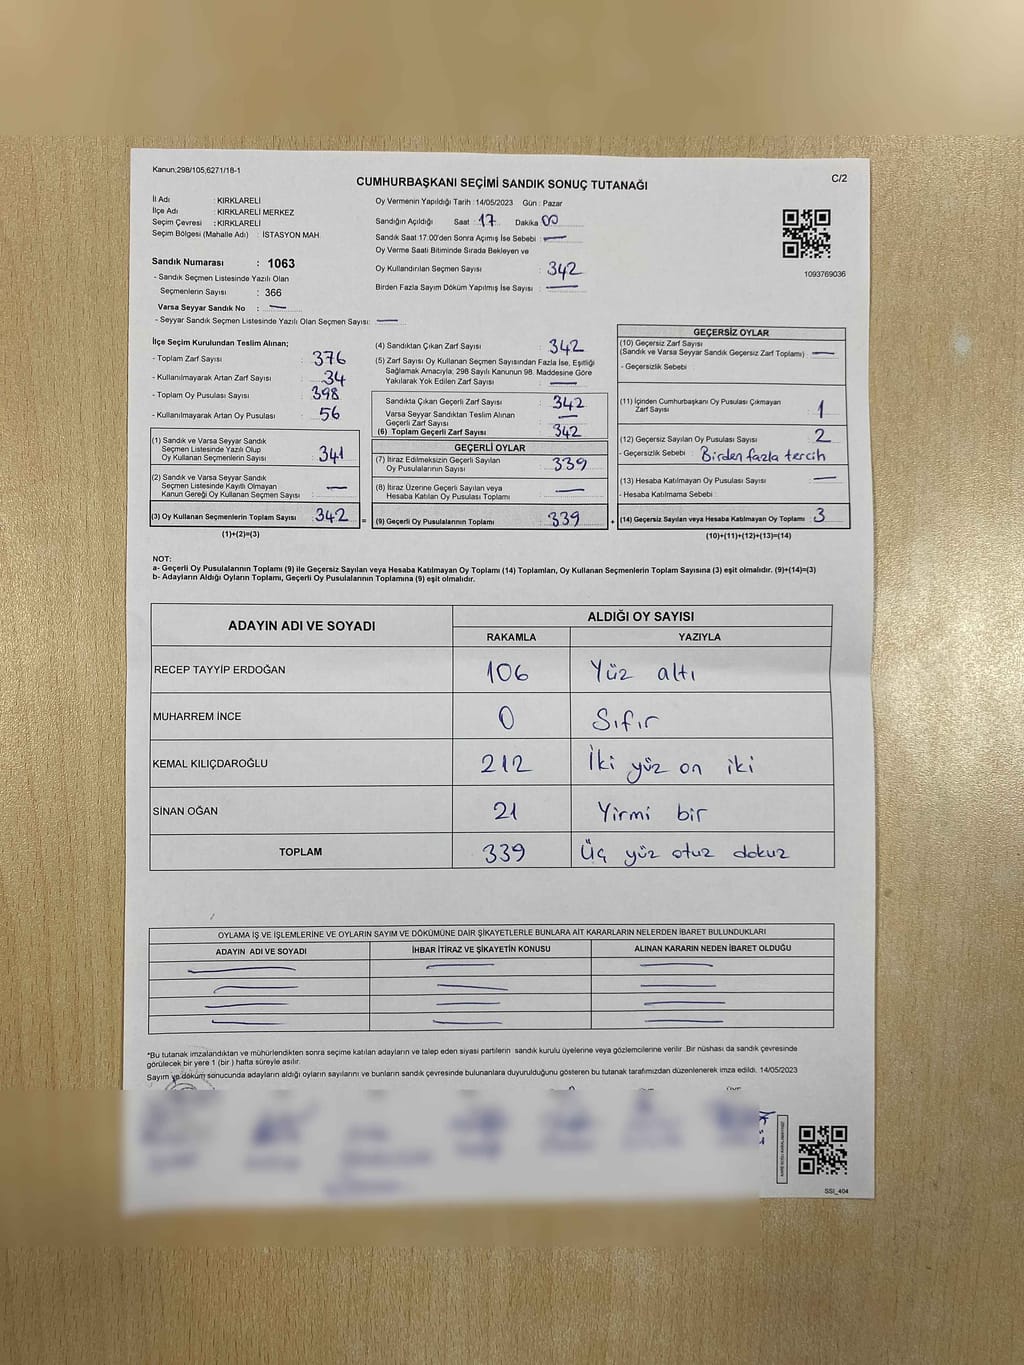 Kanun;298/105,6271/18-1
C/2
CUMHURBAŞKANI SEÇİMİ SANDIK SONUÇ TUTANAĞI
İl Adı : KIRKLARELİ
İlçe Adı : KIRKLARELİ MERKEZ
Seçim Çevresi : KIRKLARELİ
Seçim Bölgesi (Mahalle Adı) : İSTASYON MAH.
Sandık Numarası : 1063
- Sandık Seçmen Listesinde Yazılı Olan
Seçmenlerin Sayısı : 366
Varsa Seyyar Sandık No : —
- Seyyar Sandık Seçmen Listesinde Yazılı Olan Seçmen Sayısı: —
Oy Vermenin Yapıldığı Tarih : 14/05/2023 Gün : Pazar
Sandığın Açıldığı Saat : 17 Dakika 00
Sandık Saat 17:00'den Sonra Açımış İse Sebebi : —
Oy Verme Saati Bitiminde Sırada Bekleyen ve
Oy Kullandırılan Seçmen Sayısı : 342
Birden Fazla Sayım Döküm Yapılmış İse Sayısı : —
1093769036
İlçe Seçim Kurulundan Teslim Alınan;
- Toplam Zarf Sayısı : 376
- Kullanılmayarak Artan Zarf Sayısı : 34
- Toplam Oy Pusulası Sayısı : 398
- Kullanılmayarak Artan Oy Pusulası : 56
(1) Sandık ve Varsa Seyyar Sandık
Seçmen Listesinde Yazılı Olup
Oy Kullanan Seçmenlerin Sayısı : 341
(2) Sandık ve Varsa Seyyar Sandık
Seçmen Listesinde Kayıtlı Olmayan
Kanun Gereği Oy Kullanan Seçmen Sayısı : —
(3) Oy Kullanan Seçmenlerin Toplam Sayısı : 342 =
(1)+(2)=(3)
(4) Sandıktan Çıkan Zarf Sayısı : 342
(5) Zarf Sayısı Oy Kullanan Seçmen Sayısından Fazla İse, Eşitliği
Sağlamak Amacıyla; 298 Sayılı Kanunun 98. Maddesine Göre
Yakılarak Yok Edilen Zarf Sayısı : —
Sandıkta Çıkan Geçerli Zarf Sayısı : 342
Varsa Seyyar Sandıktan Teslim Alınan
Geçerli Zarf Sayısı : —
(6) Toplam Geçerli Zarf Sayısı : 342
GEÇERLİ OYLAR
(7) İtiraz Edilmeksizin Geçerli Sayılan
Oy Pusulalarının Sayısı : 339
(8) İtiraz Üzerine Geçerli Sayılan veya
Hesaba Katılan Oy Pusulası Toplamı : —
(9) Geçerli Oy Pusulalarının Toplamı : 339 +
GEÇERSİZ OYLAR
(10) Geçersiz Zarf Sayısı
(Sandık ve Varsa Seyyar Sandık Geçersiz Zarf Toplamı) : —
- Geçersizlik Sebebi
(11) İçinden Cumhurbaşkanı Oy Pusulası Çıkmayan
Zarf Sayısı : 1
(12) Geçersiz Sayılan Oy Pusulası Sayısı : 2
- Geçersizlik Sebebi : Birden fazla tercih
(13) Hesaba Katılmayan Oy Pusulası Sayısı : —
- Hesaba Katılmama Sebebi :
(14) Geçersiz Sayılan veya Hesaba Katılmayan Oy Toplamı : 3
(10)+(11)+(12)+(13)=(14)
NOT:
a- Geçerli Oy Pusulalarının Toplamı (9) ile Geçersiz Sayılan veya Hesaba Katılmayan Oy Toplamı (14) Toplamları, Oy Kullanan Seçmenlerin Toplam Sayısına (3) eşit olmalıdır. (9)+(14)=(3)
b- Adayların Aldığı Oyların Toplamı, Geçerli Oy Pusulalarının Toplamına (9) eşit olmalıdır.
ADAYIN ADI VE SOYADI
ALDIĞI OY SAYISI
RAKAMLA YAZIYLA
RECEP TAYYİP ERDOĞAN 106 Yüz altı
MUHARREM İNCE 0 Sıfır
KEMAL KILIÇDAROĞLU 212 İki yüz on iki
SİNAN OĞAN 21 Yirmi bir
TOPLAM 339 Üç yüz otuz dokuz
OYLAMA İŞ VE İŞLEMLERİNE VE OYLARIN SAYIM VE DÖKÜMÜNE DAİR ŞİKAYETLERLE BUNLARA AİT KARARLARIN NELERDEN İBARET BULUNDUKLARI
ADAYIN ADI VE SOYADI İHBAR İTİRAZ VE ŞİKAYETİN KONUSU ALINAN KARARIN NEDEN İBARET OLDUĞU
*Bu tutanak imzalandıktan ve mühürlendikten sonra seçime katılan adayların ve talep eden siyasi partilerin sandık kurulu üyelerine veya gözlemcilerine verilir .Bir nüshası da sandık çevresinde
görülecek bir yere 1 (bir ) hafta süreyle asılır.
Sayım ve döküm sonucunda adayların aldığı oyların sayılarını ve bunların sandık çevresinde bulunanlara duyurulduğunu gösteren bu tutanak tarafımızdan düzenlenerek imza edildi. 14/05/2023
SSI_404